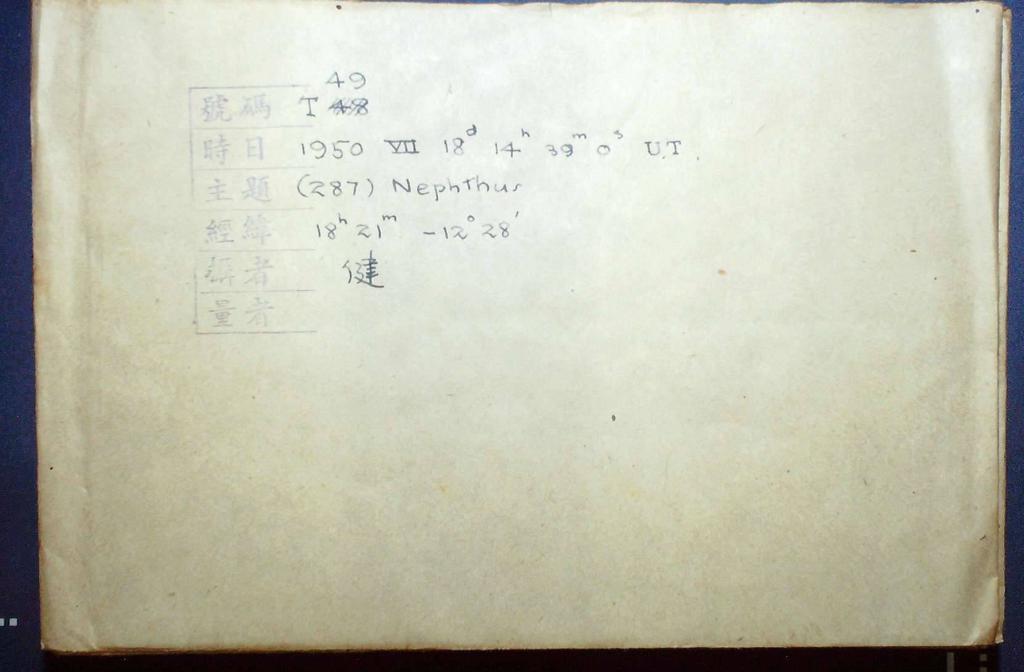 49
號碼 T 48
時日 1950 VII 18ᵈ 14ʰ 39ᵐ 0ˢ U.T.
主題 (287) Nephthus
經緯 18ʰ 21ᵐ -12° 28'
攝者 健
量者